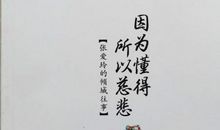 因为懂得
所以慈悲
【张爱玲的倾城往事】